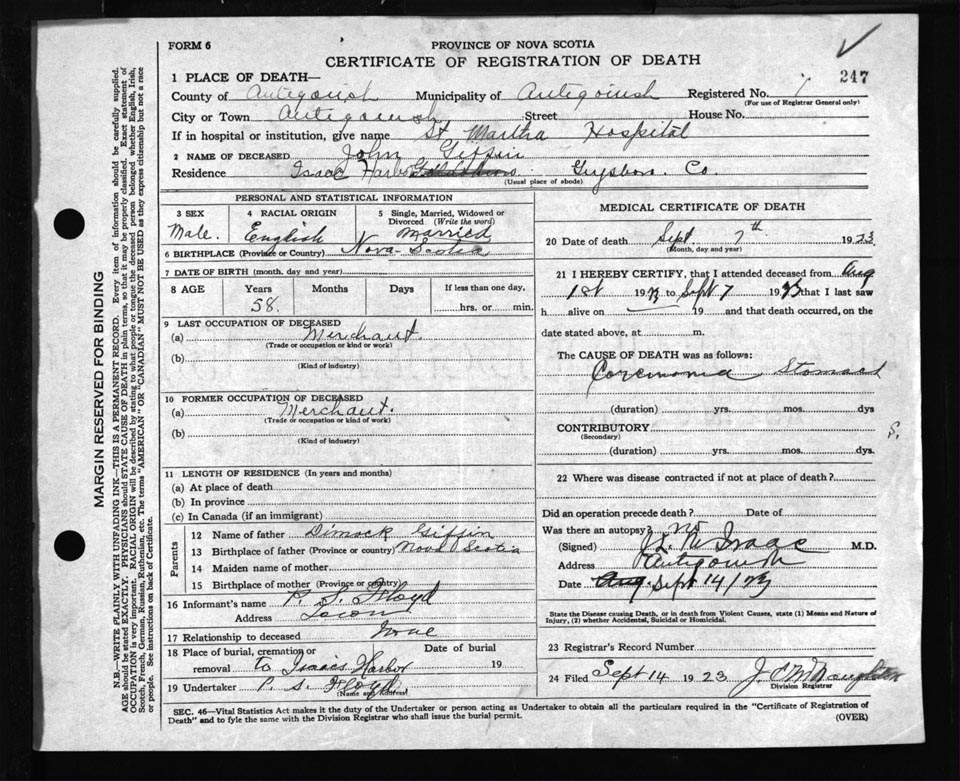 FORM 6
PROVINCE OF NOVA SCOTIA
CERTIFICATE OF REGISTRATION OF DEATH
247
1 PLACE OF DEATH—
County of Antigonish Municipality of Antigonish Registered No. 7
(For use of Registrar General only)
City or Town Antigonish Street House No.
If in hospital or institution, give name St Martha Hospital
2 NAME OF DECEASED John Giffin
Residence Isaac Harbor Guysboro. Co.
(Usual place of abode)
PERSONAL AND STATISTICAL INFORMATION
3 SEX
Male.
4 RACIAL ORIGIN
English
5 Single, Married, Widowed or Divorced (Write the word)
married
6 BIRTHPLACE (Province or Country) Nova-Scotia
7 DATE OF BIRTH (month, day and year)
8 AGE Years Months Days If less than one day,
58. hrs. or min.
9 LAST OCCUPATION OF DECEASED
(a) Merchant.
(Trade or occupation or kind or work)
(b)
(Kind of industry)
10 FORMER OCCUPATION OF DECEASED
(a) Merchant.
(Trade or occupation or kind of work)
(b)
(Kind of industry)
11 LENGTH OF RESIDENCE (In years and months)
(a) At place of death
(b) In province
(c) In Canada (if an immigrant)
Parents
12 Name of father Dimock Giffin
13 Birthplace of father (Province or country) Nova Scotia
14 Maiden name of mother
15 Birthplace of mother (Province or country)
16 Informant's name P. S. Floyd
Address
17 Relationship to deceased
18 Place of burial, cremation or removal to Isaacs Harbor Date of burial 19
19 Undertaker P. S. Floyd
(Name and Address)
MEDICAL CERTIFICATE OF DEATH
20 Date of death Sept. 7th 1923
(Month, day and year)
21 I HEREBY CERTIFY, that I attended deceased from Aug
1st 1923 to Sept 7 1923 that I last saw
h alive on 19 and that death occurred, on the
date stated above, at m.
The CAUSE OF DEATH was as follows:
Stomach
(duration) yrs. mos. dys
CONTRIBUTORY
(Secondary)
S.
(duration) yrs. mos. dys.
22 Where was disease contracted if not at place of death?
Did an operation precede death? Date of
Was there an autopsy? No
(Signed) J L McIsaac M.D.
Address Antigonish
Date Aug. Sept 14/23
State the Disease causing Death, or in death from Violent Causes, state (1) Means and Nature of Injury, (2) whether Accidental, Suicidal or Homicidal.
23 Registrar's Record Number
24 Filed Sept 14 1923 J. C McNaughton
Division Registrar
SEC. 46—Vital Statistics Act makes it the duty of the Undertaker or person acting as Undertaker to obtain all the particulars required in the "Certificate of Registration of
Death" and to fyle the same with the Division Registrar who shall issue the burial permit.
(OVER)
MARGIN RESERVED FOR BINDING
N.B.—WRITE PLAINLY WITH UNFADING INK—THIS IS A PERMANENT RECORD. Every item of information should be carefully supplied.
AGE should be stated EXACTLY. PHYSICIANS should STATE CAUSE OF DEATH in plain terms, so that it may be properly classified. Exact statement of
OCCUPATION is very important. RACIAL ORIGIN will be described by stating to what people or tongue the deceased person belonged whether English, Irish,
Scotch, French, German, Russian, Ruthenian, etc. The terms "AMERICAN" OR "CANADIAN" MUST NOT BE USED as they express citizenship but not a race
or people. See instructions on back of Certificate.